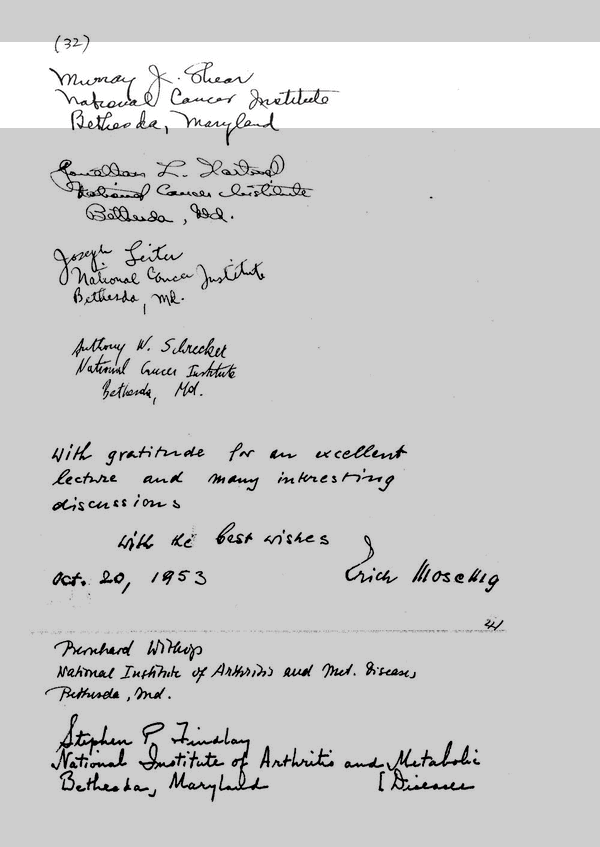 (32)
Murray J. Shear
National Cancer Institute
Bethesda, Maryland
Jonathan L. Hartwell
National Cancer Institute
Bethesda, Md.
Joseph Leiter
National Cancer Institute
Bethesda, Md.
Anthony W. Schrecker
National Cancer Institute
Bethesda, Md.
With gratitude for an excellent
lecture and many interesting
discussions
with the best wishes
Oct. 20, 1953 Erich Mosettig
Bernhard Witkop
National Institute of Arthritis and Met. Diseases,
Bethesda, Md.
Stephen P. Findlay
National Institute of Arthritis and Metabolic
Bethesda, Maryland [Diseases